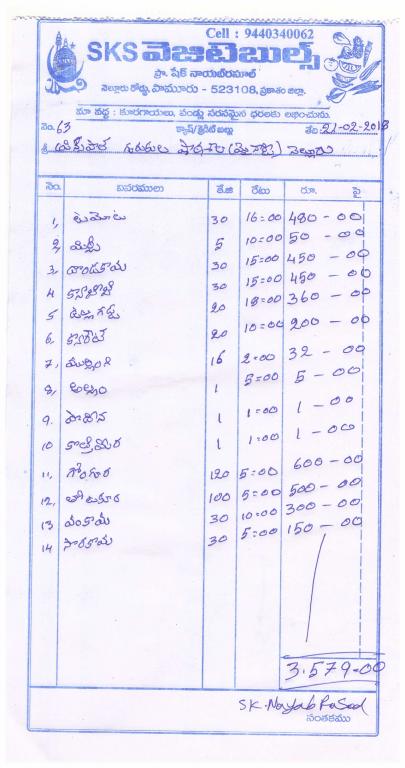 Cell : 9440340062
SKS వెజిటెబుల్స్
ప్రొ. షేక్ నాయబ్‌రసూల్
నెల్లూరు రోడ్డు, పామూరు - 523108, ప్రకాశం జిల్లా.
మా వద్ద : కూరగాయలు, పండ్లు సరసమైన ధరలకు లభించును.
నెం. 63 క్యాష్/క్రెడిట్ బిల్లు తేది 21-02-2018
శ్రీ గురుకుల పాఠశాల నెల్లూరు
నెం. వివరములు కే.జి రేటు రూ. పై
1, టమోటా 30 16=00 480-00
2, మిర్చి 5 10=00 50-00
3, దొండకాయ 30 15=00 450-00
4 30 15=00 450-00
5 ఉల్లగడ్డ 20 18=00 360-00
6, క్యారెట్ 20 10=00 200-00
7, మునగ 16 2=00 32-00
8, అల్లం 1 5=00 5-00
9. పొదీన 1 1=00 1-00
10 కొత్తిమీర 1 1=00 1-00
11, గోంగూర 120 5=00 600-00
12, తోటకూర 100 5=00 500-00
13 వంకాయ 30 10=00 300-00
14 సొరకాయ 30 5=00 150-00
3.579-00
SK. Nayab Rasool
సంతకము